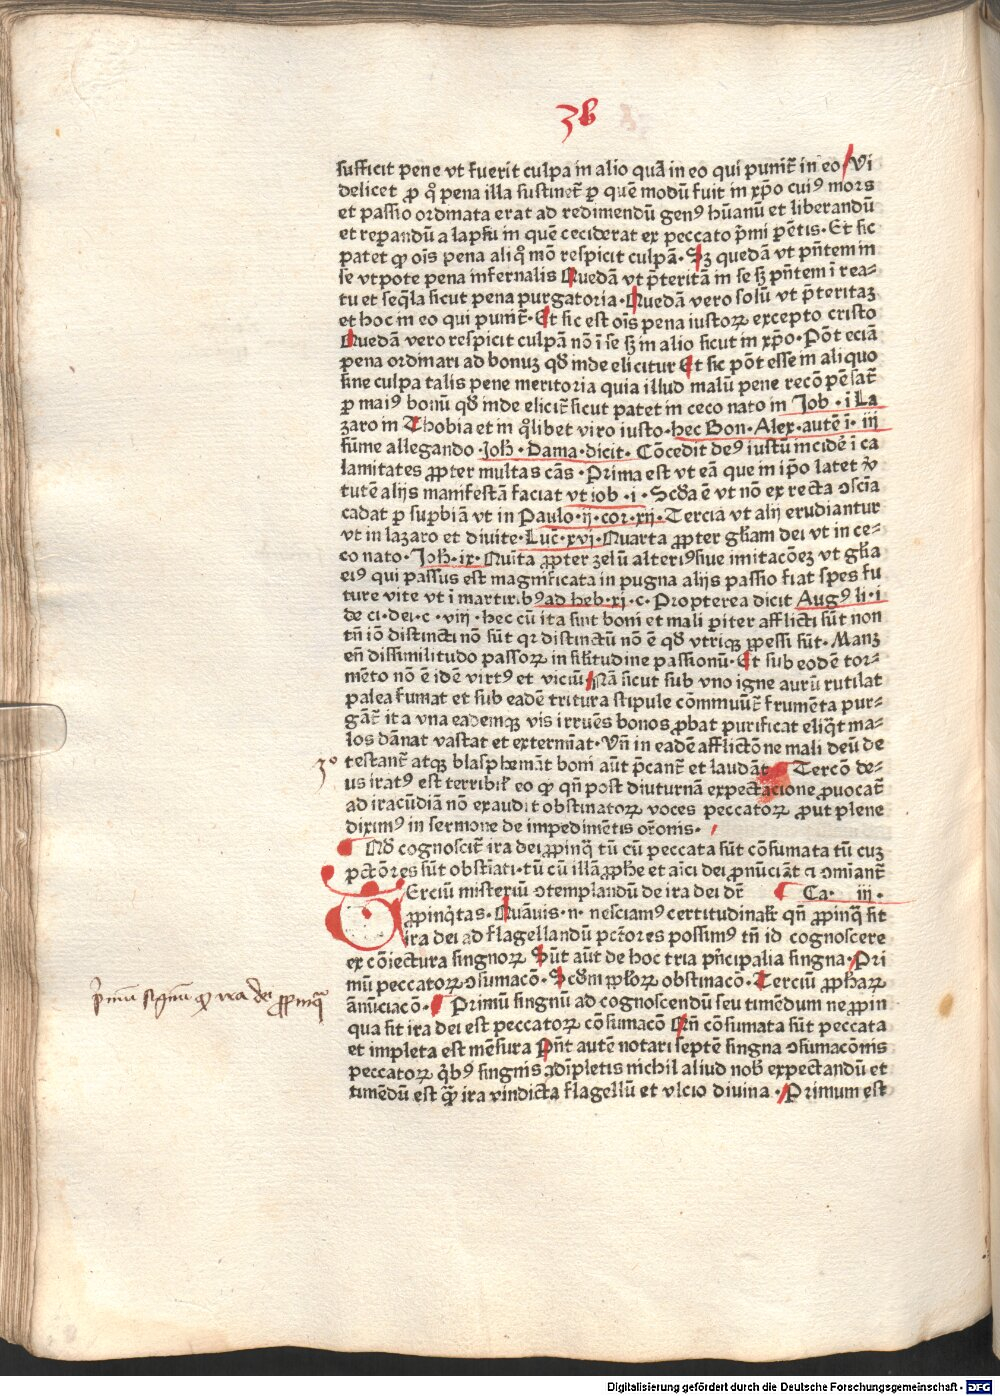 3b
sufficit pene vt fuerit culpa in alio quā in eo qui punit̄ in eo Vi
delicet ꝓ qͦ pena illa sustinet̄ ꝑ quē modū fuit in xp̄o cuiꝰ mors
et passio ordinata erat ad redimendū genꝰ hūanū et liberandū
et reparandū a lapsu in quē ceciderat ex peccato p̄mi pēntis· Et sic
patet ꝙ oīs pena aliqͦ mō respicit culpā· Sꝫ quedā vt pn̄tem in
se vtpote pena infernalis Quedā vt p̄teritā in se sꝫ pn̄tem ī rea⸗
tu et seq̄la sicut pena purgatoria· Quedā vero solū vt p̄teritaꝫ
et hoc in eo qui punit̄· Et sic est oīs pena iustoꝝ excepto cristo
Quedā vero respicit culpā nō ī se sꝫ in alio sicut in xp̄o· Pōt eciā
pena ordinari ad bonuꝫ qd̄ inde elicitur Et sic pōt esse in aliquo
sine culpa talis pene meritoria quia illud malū pene recōpēsat̄
ꝑ maiꝰ bonū qd̄ inde elicit̄ sicut patet in ceco nato in Job· i La
zaro in Thobia et in qͦlibet viro iusto· hec Bon· Alex· autē ī· iii
sūme allegando· Joh̄· Dama· dicit· Cōcedit deꝰ iustū incidē ī ca
lamitates ꝓpter multas cās· Prima est vt eā que in ip̄o latet v̾
tutē alijs manifestā faciat vt iob· i· Scd̄a ē vt nō ex recta ↄsciā
cadat ꝑ supbiā vt in Paulo· ij· cor· xij· Tercia vt alij erudiantur
vt in lazaro et diuite· Luc̄· xvj· Quarta ꝓpter gl̄iam dei vt in ce⸗
co nato· Joh̄· ix· Quīta ꝓpter zelū alteriꝰ siue imitacōeꝫ vt gl̄ia
eiꝰ qui passus est magnificata in pugna alijs passio fiat spes fu
ture vite vt ī martiribꝰ ad heb· xj· c· Propterea dicit Augꝰ li· i
de ci· dei· c· viij· hec cū ita sint boni et mali pariter afflicti sūt non
tn̄ iō distincti nō sūt qr distinctū nō ē qd̄ vtriqꝫ ꝑpessi sūt· Manꝫ
en̄ dissimilitudo passoꝝ in sil̄itudine passionū· Et sub eodē tor⸗
mēto nō ē idē virtꝰ et viciū Nā sicut sub vno igne aurū rutilat
palea fumat et sub eadē tritura stipule cōmuūt̄ frumēta pur⸗
gāt̄ ita vna eademqꝫ vis irruēs bonos ꝓbat purificat eliq̄t ma⸗
los dānat vastat et extermīat· Vn̄ in eadē afflictōne mali deū de
3° testant̄ atqꝫ blasphemāt boni aūt p̄cant̄ et laudāt Tercō de⸗
us iratꝰ est terribil̄ eo ꝙ qn̄ post diuturnā expectacione ꝓuocat̄
ad iracūdiā nō exaudit obstinatoꝝ voces peccatoꝝ ꝓut plene
diximꝰ in sermone de impedimētis or̄onis·
Qd̄ cognoscit̄ ira dei ꝓpinq̄ tū cū peccata sūt cōsumata tū cuꝫ
pctōres sūt obstīati· tū cū illā ꝓph̄e et aīci dei ꝓnūciāt ꞇ ↄmiant̄
Terciū misteriū ↄtemplandū de ira dei dr̄ Ca· iii·
ꝓpinq̄tas· Quāuis· n· nesciamꝰ certitudinalr̄ qn̄ ꝓpinq̄ sit
ira dei ad flagellandū pctōres possimꝰ tn̄ id cognoscere
ex cōiectura singnoꝝ Sūt aūt de hoc tria pn̄cipalia singna· Pri
mū peccatoꝝ ↄsumacō· Scd̄m ip̄oꝝ obstinacō· Terciū ꝓph̄aꝝ
p̄mū signū ꝙ ira dei ꝓpinqua
ānūciacō· Primū singnū ad cognoscendū seu timēdum ne ꝓpin
qua sit ira dei est peccatoꝝ cōsumacō Qn̄ cōsumata sūt peccata
et impleta est mēsura Pn̄t autē notari septē singna ↄsumacōnis
peccatoꝝ q̄bꝰ singnis ↄdīpletis nichil aliud nob̄ expectandū et
timēdū est q̄ꝫ ira vindicta flagellū et vlcio diuina· Primum est
Digitalisierung gefördert durch die Deutsche Forschungsgemeinschaft - DFG